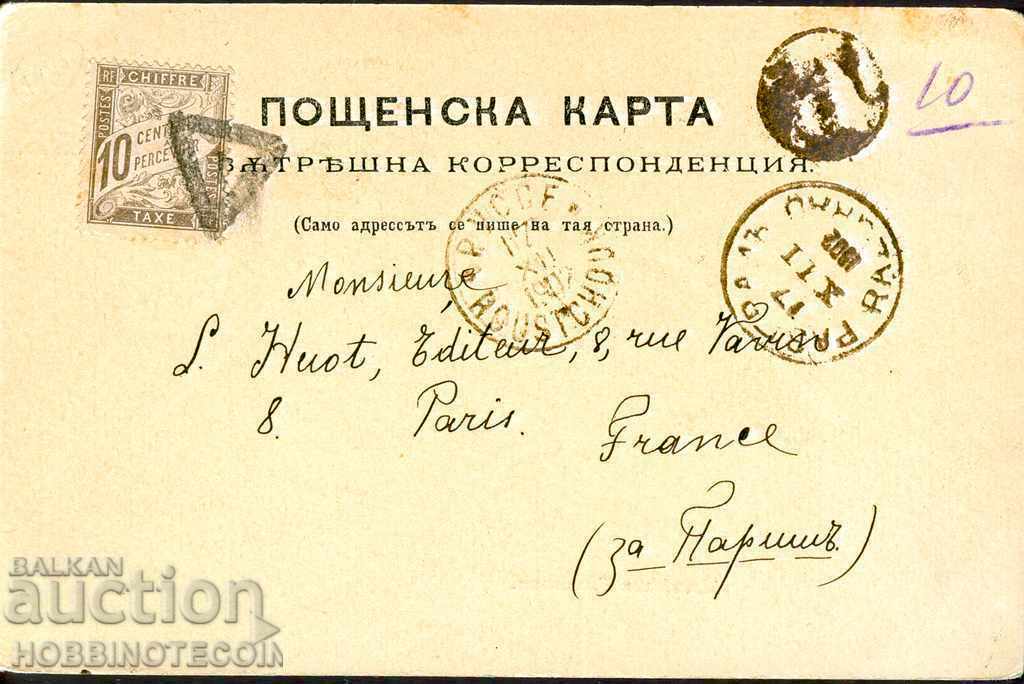 RF CHIFFRE
POSTES
10 CENT
PERCEVOIR
TAXE
10
ПОЩЕНСКА КАРТА
ВѪТРѢШНА КОРРЕСПОНДЕНЦИЯ.
(Само адрессътъ се пише на тая страна.)
17
XII
1902
ROUSTCHOUC
17
XII
1902
Monsieur
L. Huot, Editeur, 8, rue Vavin
8. Paris.
France
(за Парижъ)
BALKAN
auction
HOBBINOTECOIN